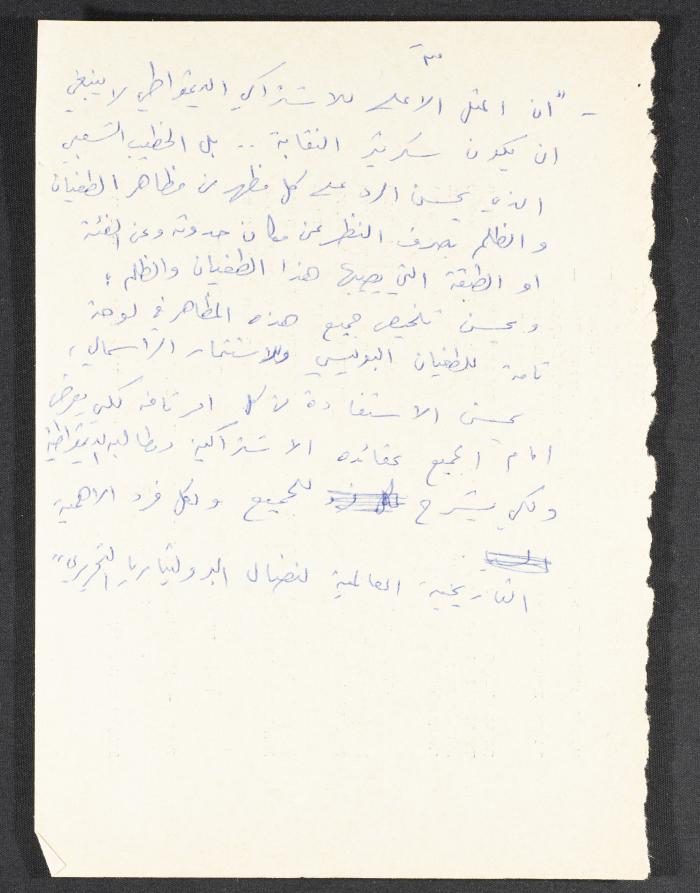 - "ان المثل الاعلى للاشتراكي الديمقراطي لا ينبغي
ان يكون سكرتير النقابة .. بل الخطيب الشعبي
الذي يحسن الرد على كل مظهر من مظاهر الطغيان
والظلم بصرف النظر عن مكان حدوثه وعن الفئة
او الطبقة التي يصيبها هذا الطغيان والظلم ؛
ويحسن تلخيص جميع هذه المظاهر في لوحة
تامة للطغيان البوليسي وللاستثمار الرأسمالي ،
يحسن الاستفادة من كل امر تافه لكي يعرض
امام الجميع عقائده الاشتراكية ومطالبه الديمقراطية
ولكي يشرح للجميع ولكل فرد الاهمية
التاريخية العالمية لنضال البروليتاريا التحرري"